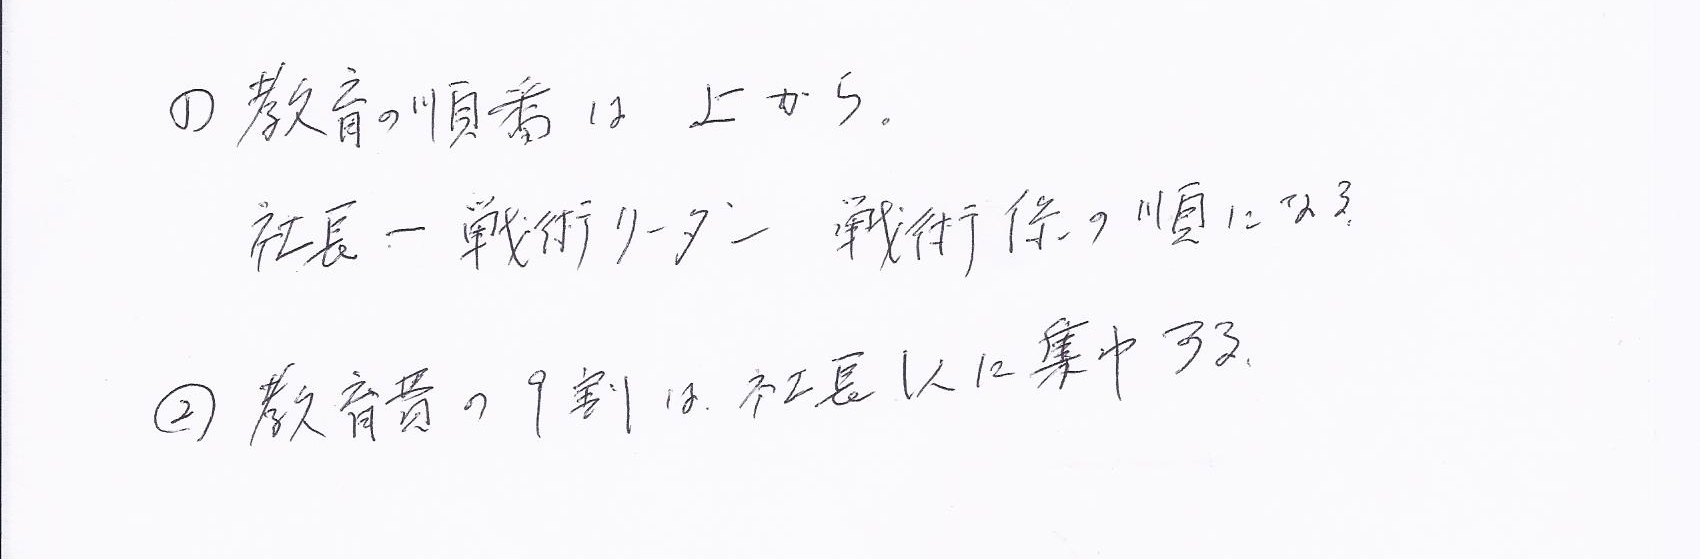 ① 教育の順番は 上から。
社長ー戦術リーダー 戦術係の順になる。
② 教育費の9割は、社長1人に集中する。